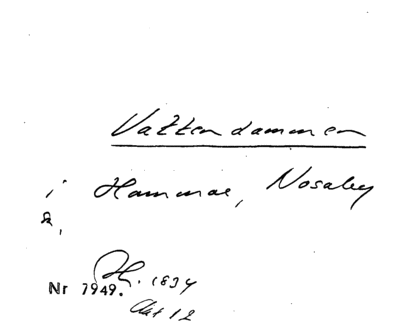 Vattendammen
i Hammar, Nosaby
Nr 7949. 1834